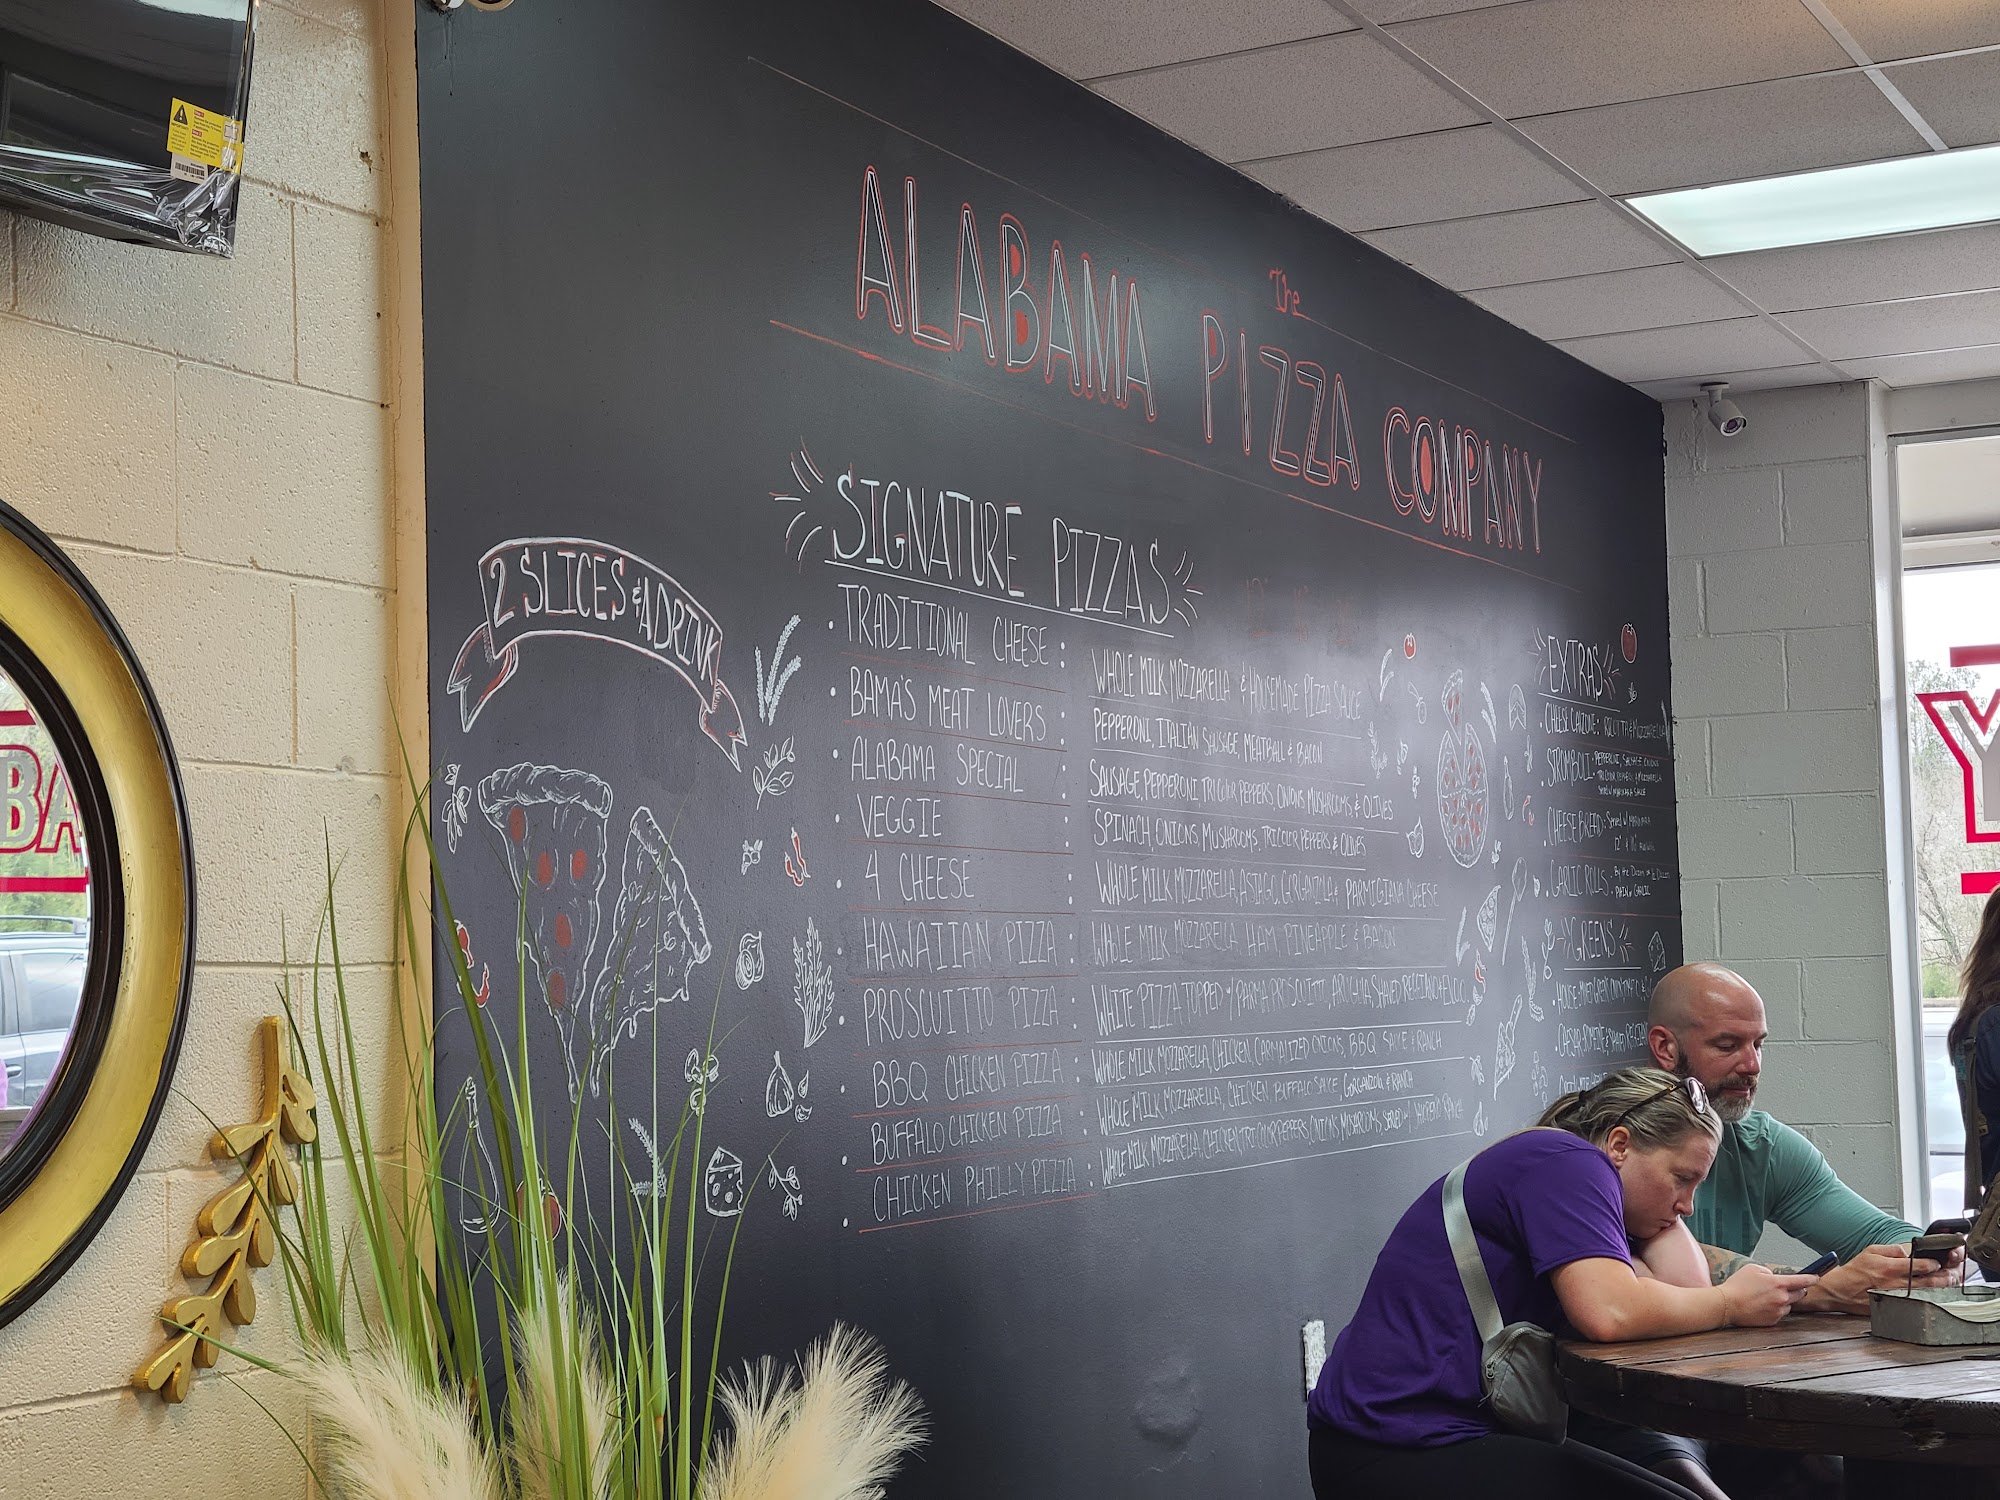 The
ALABAMA PIZZA COMPANY
2 SLICES & A DRINK
SIGNATURE PIZZAS
• TRADITIONAL CHEESE : WHOLE MILK MOZZARELLA & HOUSEMADE PIZZA SAUCE
• BAMA'S MEAT LOVERS : PEPPERONI, ITALIAN SAUSAGE, MEATBALL & BACON
• ALABAMA SPECIAL : SAUSAGE, PEPPERONI, TRI COLOR PEPPERS, ONIONS MUSHROOMS & OLIVES
• VEGGIE : SPINACH, ONIONS, MUSHROOMS, TRICOLOR PEPPERS & OLIVES
• 4 CHEESE : WHOLE MILK MOZZARELLA, ASIAGO, GORGANZOLA & PARMIGIANA CHEESE
• HAWAIIAN PIZZA : WHOLE MILK MOZZARELLA HAM, PINEAPPLE & BACON
• PROSCUITTO PIZZA : WHITE PIZZA TOPPED w/ PARMA PROSCUITT, ARUGULA, SHAVED REGGIANO & E.V.O.O.
• BBQ CHICKEN PIZZA : WHOLE MILK MOZZARELLA, CHICKEN, CARMALIZED ONIONS, BBQ SAUCE & RANCH
• BUFFALO CHICKEN PIZZA : WHOLE MILK MOZZARELLA, CHICKEN, BUFFALO SAUCE, GORGANZOLA & RANCH
• CHICKEN PHILLY PIZZA : WHOLE MILK MOZZARELLA, CHICKEN, TRI COLOR PEPPERS, ONIONS MUSHROOMS, SERVED w/ RANCH
EXTRAS
• CHEESE CALZONE: RICOTTA & MOZZARELLA
• STROMBOLI: PEPPERONI, SAUSAGE, ONIONS
TRI COLOR PEPPERS & MOZZARELLA
SERVED w/ MARINARA SAUCE
• CHEESE BREAD: SERVED w/ MARINARA
12" & 16" AVAILABLE
• GARLIC ROLLS: By the Dozen or 1/2 Dozen
PLAIN or GARLIC
GREENS
• HOUSE
• CAESAR: ROMAINE &
BA
Y